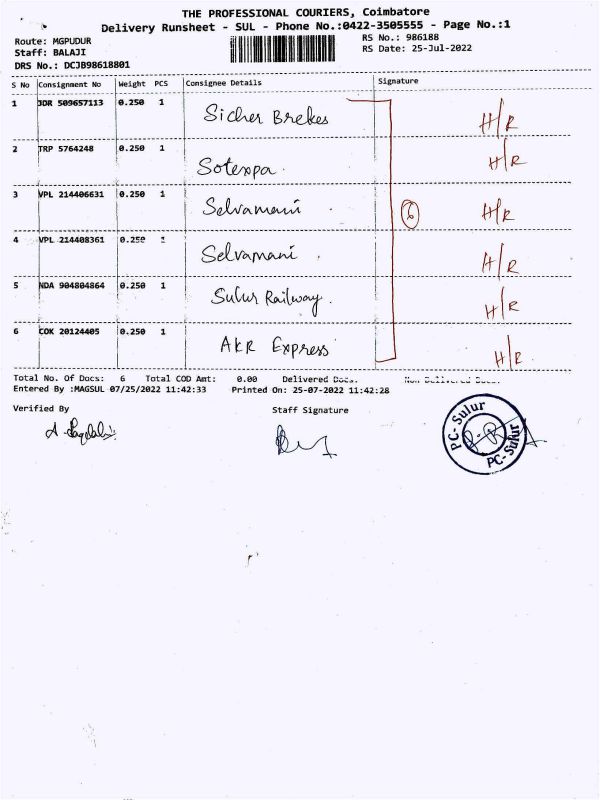 THE PROFESSIONAL COURIERS, Coimbatore
Delivery Runsheet - SUL - Phone No.:0422-3505555 - Page No.:1
Route: MGPUDUR
Staff: BALAJI
DRS No.: DCJB98618801
RS No.: 986188
RS Date: 25-Jul-2022
S No Consignment No Weight PCS Consignee Details Signature
1 JDR 509657113 0.250 1 Sicher Brekes H/R
2 TRP 5764248 0.250 1 Sotexpa. H/R
3 VPL 214406631 0.250 1 Selvamani . 6 H/R
4 VPL 214408361 0.250 1 Selvamani . H/R
5 NDA 904804864 0.250 1 Sulur Railway. H/R
6 COK 20124405 0.250 1 AKR Express H/R.
Total No. Of Docs: 6 Total COD Amt: 0.00 Delivered Docs. Non Delivered Docs.
Entered By :MAGSUL 07/25/2022 11:42:33 Printed On: 25-07-2022 11:42:28
Verified By Staff Signature
PC-Sulur
PC-Sulur